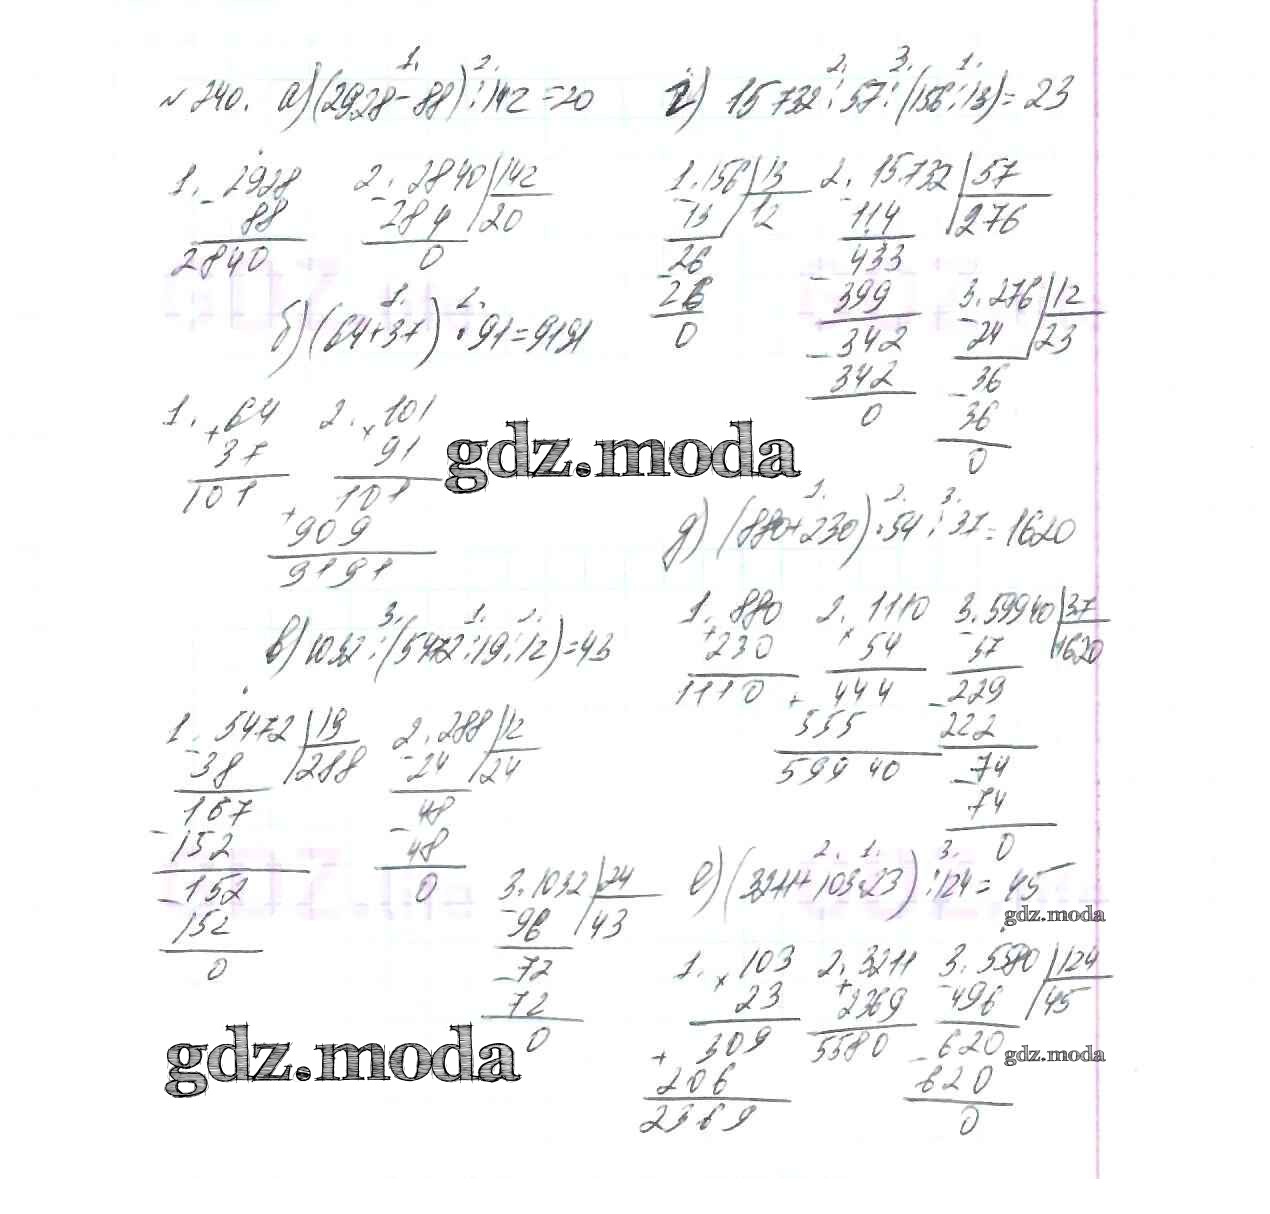 №240. а) (2928-88):142=20
1. 2.
1. - 2928
88
2840
2. - 2840 | 142
284 | 20
0
б) (64+37)·91=9191
1. 2.
1. + 64
37
101
2. × 101
91
101
+ 909
9191
в) 1032:(5472:19:12)=43
3. 1. 2.
1. - 5472 | 19
38 | 288
167
- 152
- 152
152
0
2. - 288 | 12
24 | 24
- 48
48
0
3. - 1032 | 24
96 | 43
- 72
72
0
г) 15732:57:(156:13)=23
2. 3. 1.
1. - 156 | 13
13 | 12
- 26
26
0
2. - 15732 | 57
114 | 276
- 433
399
- 342
342
0
3. - 276 | 12
24 | 23
- 36
36
0
gdz.moda
д) (880+230)·54:37=1620
1. 2. 3.
1. + 880
230
1110
2. × 1110
54
+ 444
555
59940
3. - 59940 | 37
37 | 1620
- 229
222
- 74
74
0
е) (3211+103·23):124=45
2. 1. 3.
gdz.moda
1. × 103
23
309
+ 206
2369
2. + 3211
2369
5580
3. - 5580 | 124
496 | 45
- 620
620
0
gdz.moda
gdz.moda